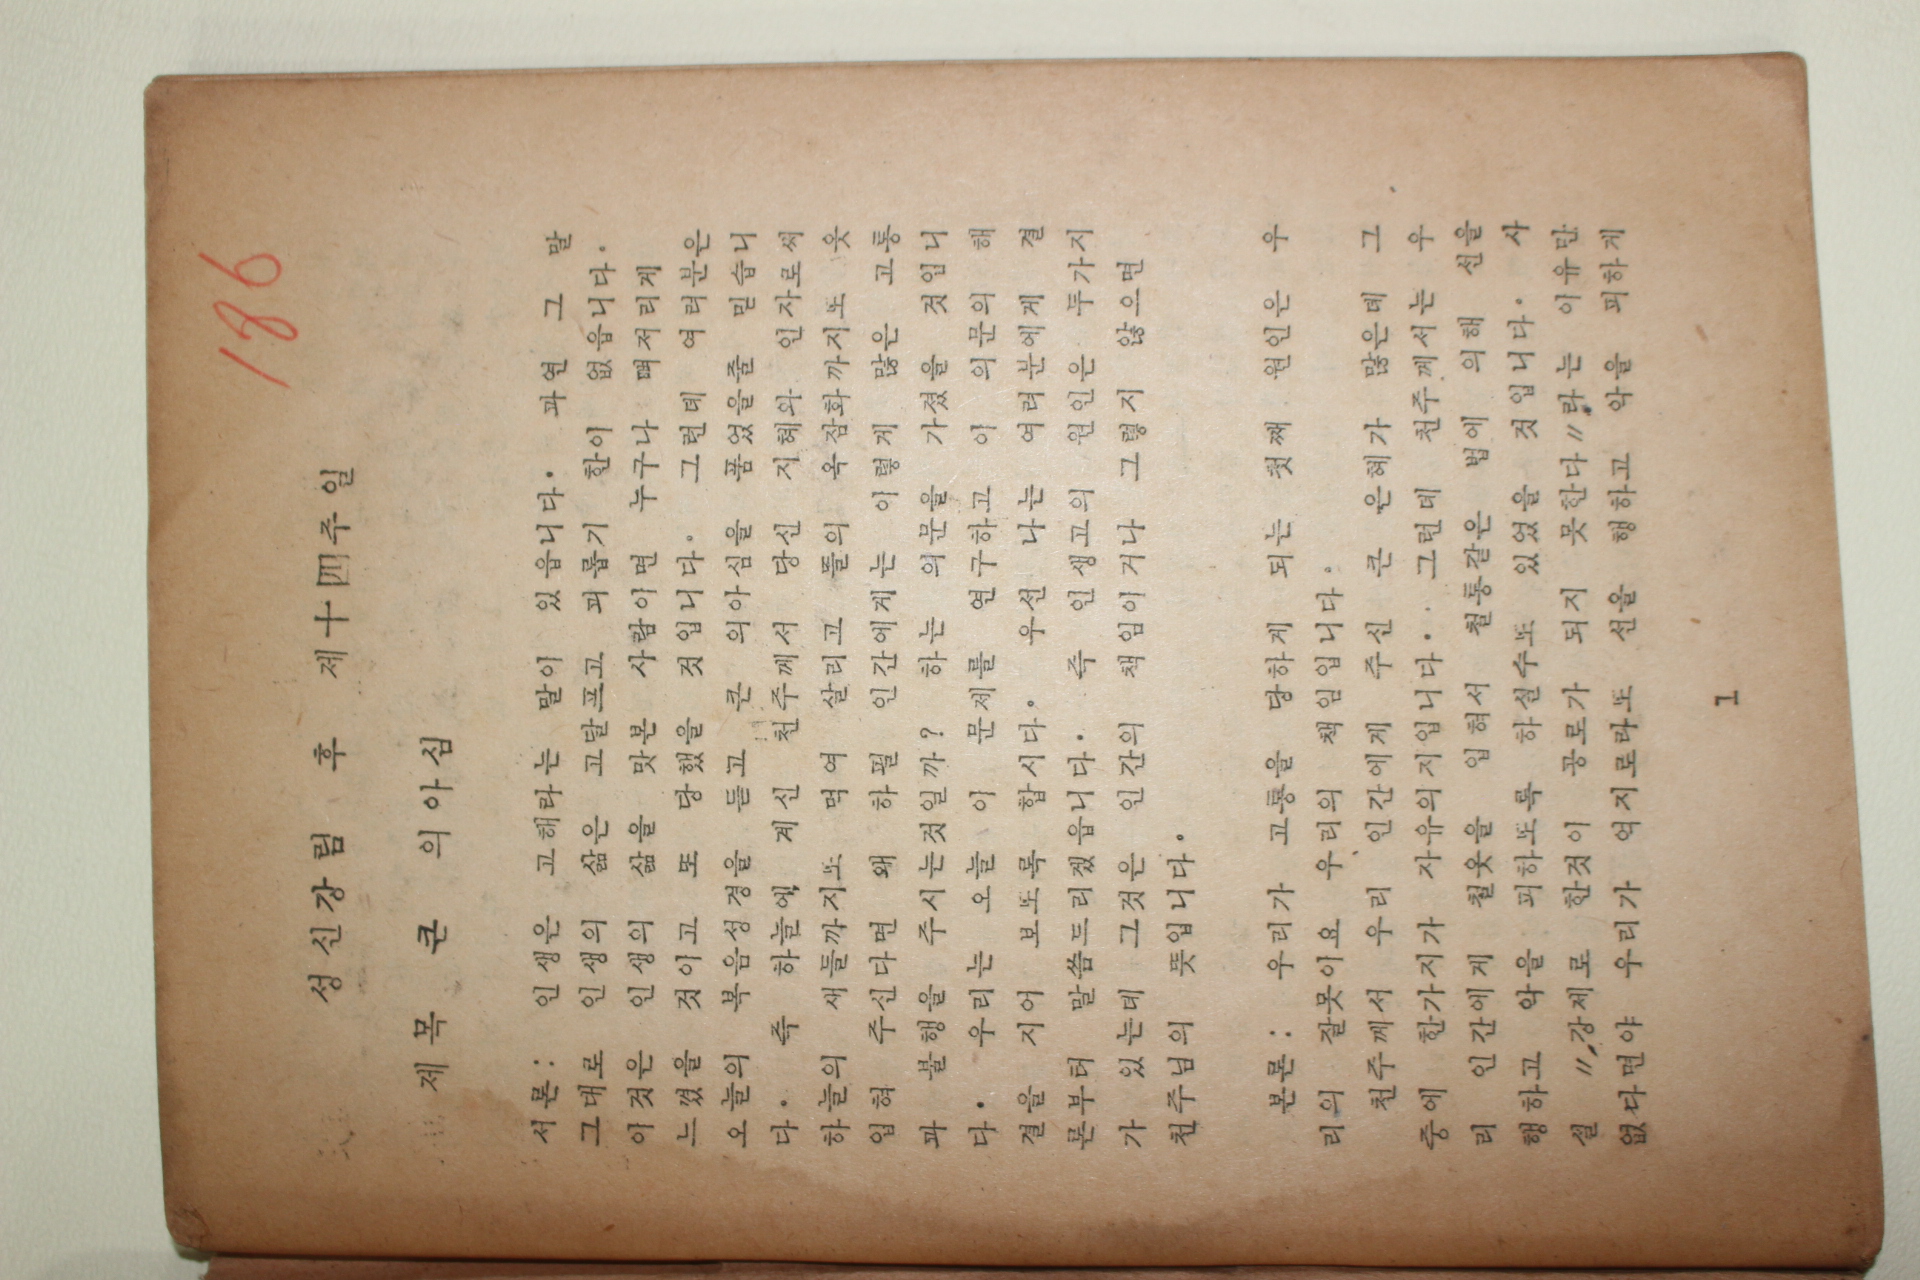 186
성신강림 후 제十四주일
제목 큰 의아심
서론: 인생은 고해라는 말이 있읍니다. 과연 그 말
그대로 인생의 삶은 고달프고 괴롭기 한이 없읍니다.
이것은 인생의 삶을 맛본 사람이면 누구나 뼈저리게
느꼈을 것이고 또 당했을 것입니다. 그런데 여러분은
오늘의 복음성경을 듣고 큰 의아심을 품었을줄 믿습니
다. 즉 하늘에 계신 천주께서 당신 지혜와 인자로써
하늘의 새들까지도 먹여 살리고 들의 옥잠화까지도 옷
입혀 주신다면 왜 하필 인간에게는 이렇게 많은 고통
과 불행을 주시는것일까? 하는 의문을 가졌을 것입니
다. 우리는 오늘 이 문제를 연구하고 이 의문의 해
결을 지어 보도록 합시다. 우선 나는 여러분에게 결
론부터 말씀드리겠읍니다. 즉 인생고의 원인은 두가지
가 있는데 그것은 인간의 책임이거나 그렇지 않으면
천주님의 뜻입니다.
본론: 우리가 고통을 당하게 되는 첫째 원인은 우
리의 잘못이요 우리의 책임입니다.
천주께서 우리 인간에게 주신 큰 은혜가 많은데 그
중에 한가지가 자유의지입니다. 그런데 천주께서는 우
리 인간에게 철옷을 입혀서 철통같은 법에 의해 선을
행하고 악을 피하도록 하실수도 있었을 것입니다. 사
실 〃강제로 한것이 공로가 되지 못한다〃라는 이유만
없다면야 우리가 억지로라도 선을 행하고 악을 피하게
1